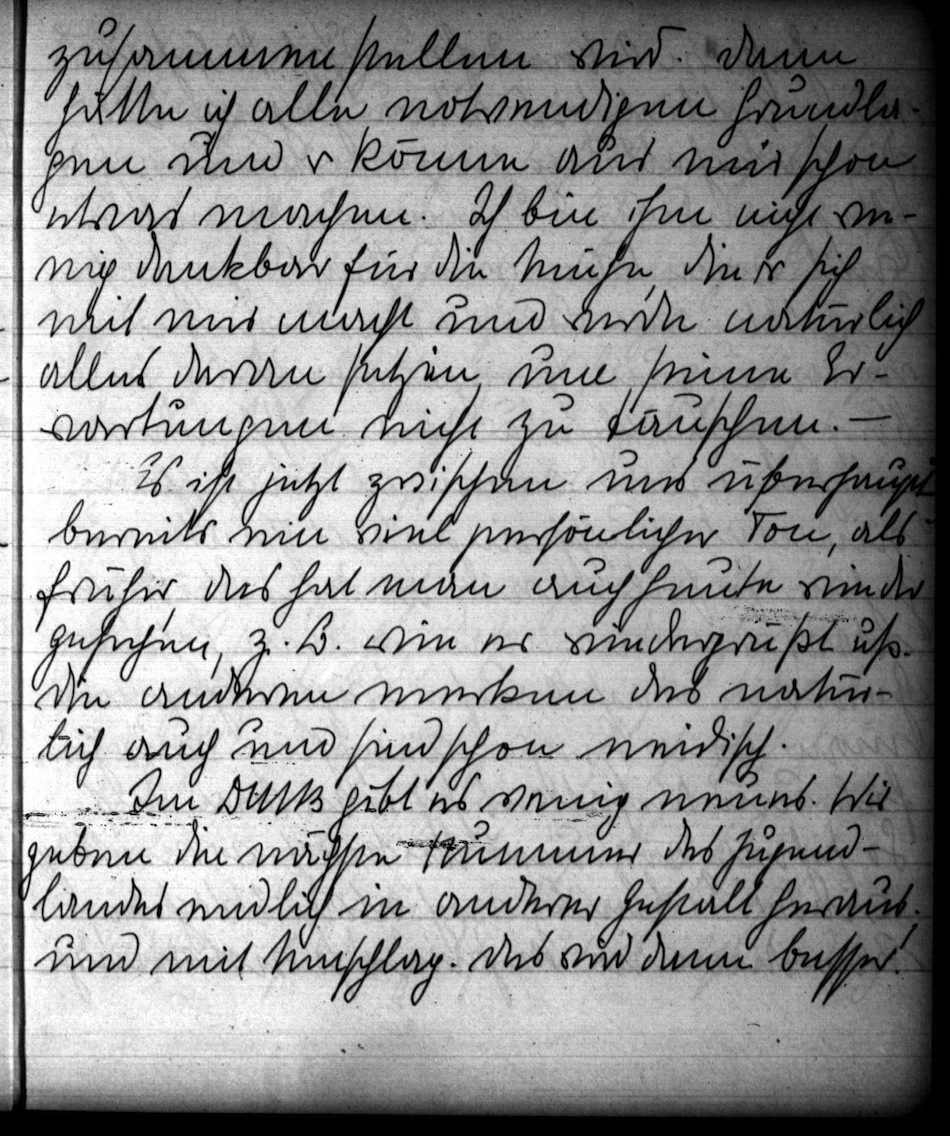 zusammenstellen wird. Dann
hätte ich alle notwendigen Grundla-
gen und er könne aus mir schon
etwas machen. Ich bin ihm nicht we-
nig dankbar für die Mühe, die er sich
mit mir macht und werde natürlich
alles daran setzen, um seine Er-
wartungen nicht zu täuschen. —
Es ist jetzt zwischen uns überhaupt
bereits ein viel persönlicher Ton, als
früher, das hat man auch heute wieder
gesehen, z. B. wie er wiedergrüßt usw.
die anderen merken das natür-
lich auch und sind schon neidisch.
Im gibt es wenig neues. Wir
geben die nächste Nummer des Jugend-
landes endlich in anderer Gestalt heraus.
und mit Umschlag. Das wird dann besser!